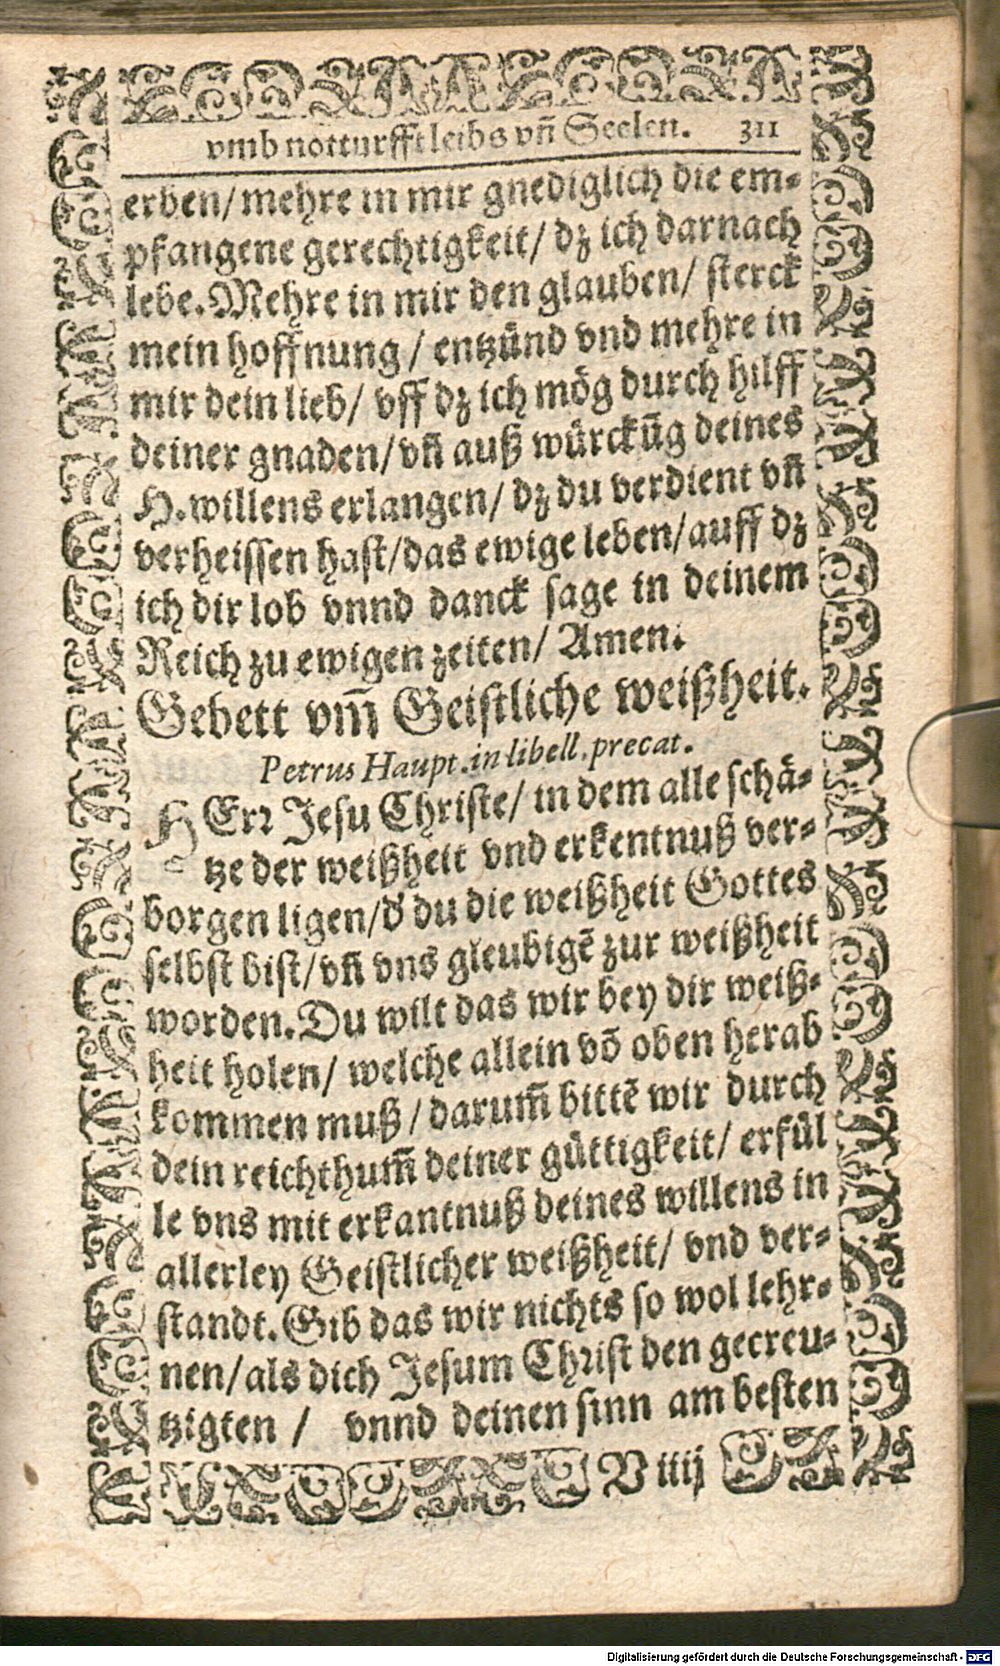 vmb notturfft leibs vñ Seelen. 311
erben/ mehre in mir gnediglich die em⸗
pfangene gerechtigkeit/ dz ich darnach
lebe. Mehre in mir den glauben/ sterck
mein hoffnung / entzünd vnd mehre in
mir dein lieb/ vff dz ich mög durch hilff
deiner gnaden/ vñ auß würckũg deines
H. willens erlangen/ dz du verdient vñ
verheissen hast/ das ewige leben/ auff dz
ich dir lob vnnd danck sage in deinem
Reich zu ewigen zeiten/ Amen.
Gebett vm̃ Geistliche weißheit.
Petrus Haupt. in libell. precat.
HErr Jesu Christe/ in dem alle schä⸗
tze der weißheit vnd erkentnuß ver⸗
borgen ligen/ d' du die weißheit Gottes
selbst bist/ vñ vns gleubigẽ zur weißheit
worden. Du wilt das wir bey dir weiß⸗
heit holen/ welche allein võ oben herab
kommen muß / darum̃ bittẽ wir durch
dein reichthum̃ deiner güttigkeit/ erfül
le vns mit erkantnuß deines willens in
allerley Geistlicher weißheit/ vnd ver⸗
standt. Gib das wir nichts so wol lehr⸗
nen/ als dich Jesum Christ den gecreu⸗
tzigten / vnnd deinen sinn am besten
V iiij
Digitalisierung gefördert durch die Deutsche Forschungsgemeinschaft - DFG